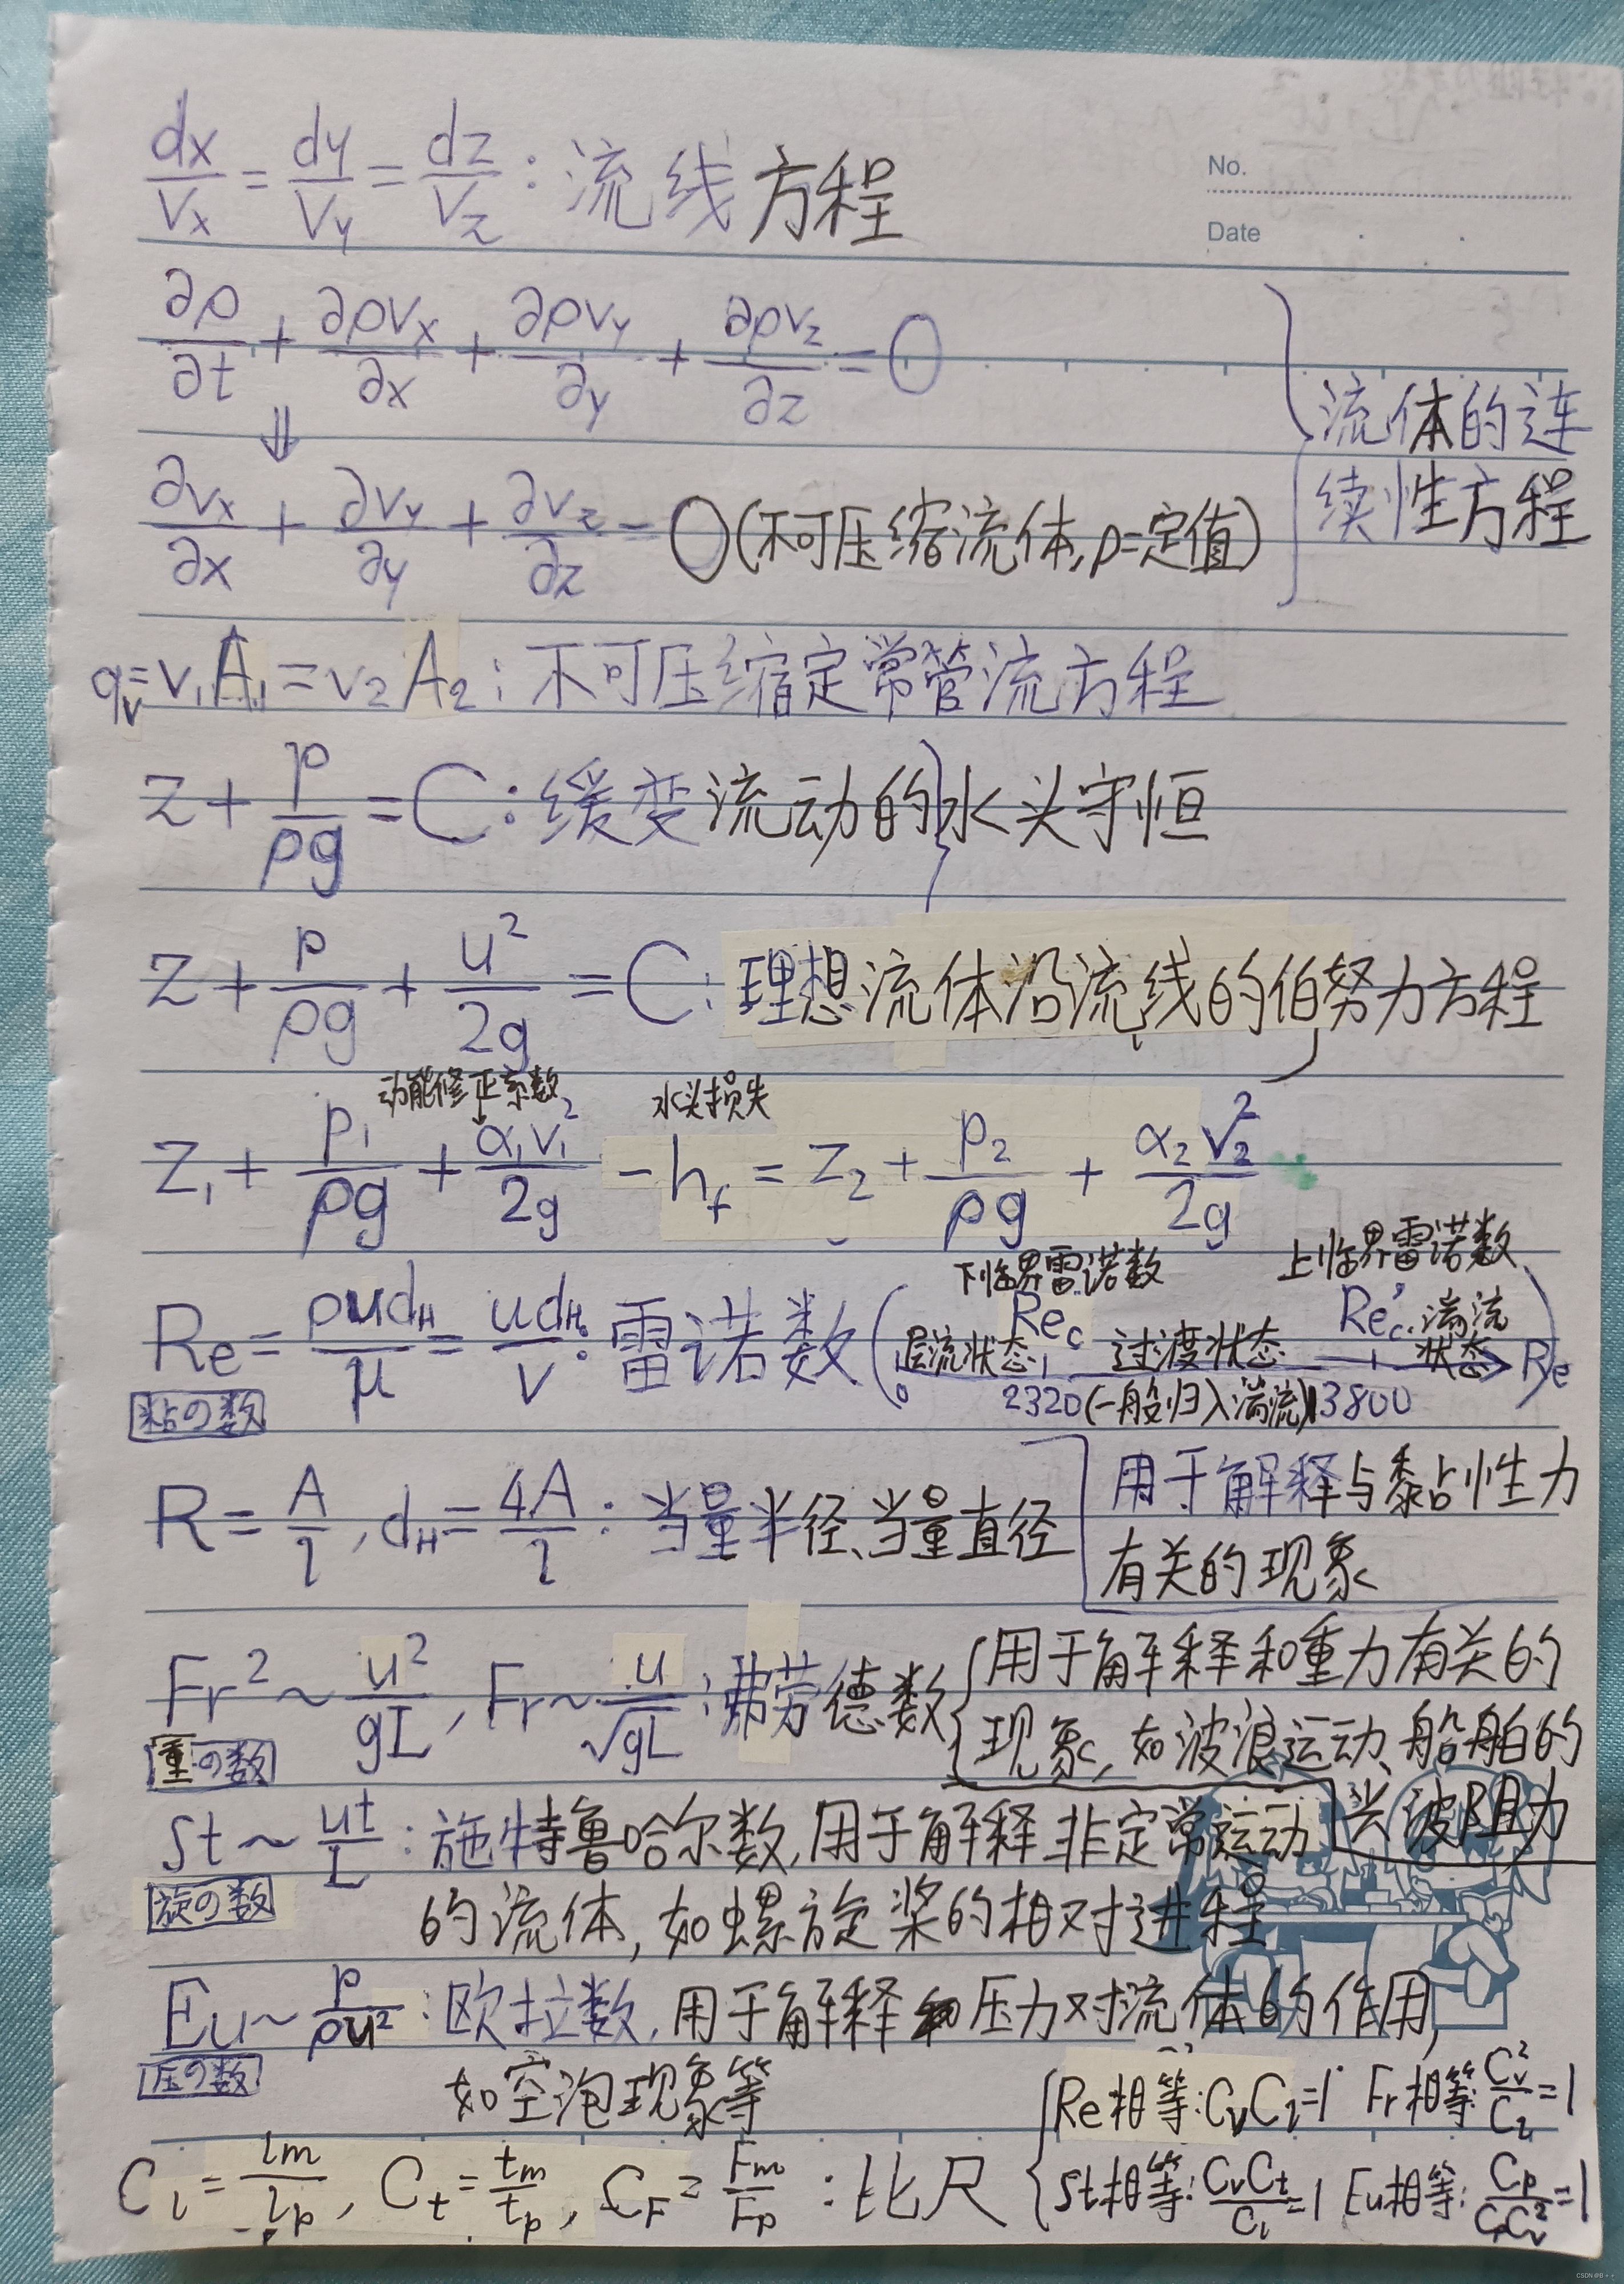 No.
Date
dx/Vx = dy/Vy = dz/Vz : 流线方程
∂ρ/∂t + ∂ρvx/∂x + ∂ρvy/∂y + ∂ρvz/∂z = 0
⇓
∂vx/∂x + ∂vy/∂y + ∂vz/∂z = 0 (不可压缩流体, ρ=定值)
流体的连
续性方程
qv = v₁A₁ = v₂A₂ : 不可压缩定常管流方程
z + p/ρg = C : 缓变流动的水头守恒
z + p/ρg + u²/2g = C : 理想流体沿流线的伯努力方程
动能修正系数 水头损失
z₁ + p₁/ρg + α₁v₁²/2g - hf = z₂ + p₂/ρg + α₂v₂²/2g
下临界雷诺数 上临界雷诺数
Re = ρudH/μ = udH/ν : 雷诺数 ( 0 层流状态 Rec 过渡状态 Rec' 湍流状态 → Re )
2320 (一般归入湍流) 13800
粘の数
R = A/l , dH = 4A/l : 当量半径、当量直径
用于解释与黏性力
有关的现象
Fr² ~ u²/gL , Fr ~ u/√gL : 弗劳德数
用于解释和重力有关的
现象, 如波浪运动、船舶的
兴波阻力
重の数
St ~ ut/L : 施特鲁哈尔数, 用于解释非定常运动
的流体, 如螺旋桨的相对进程
旋の数
Eu ~ p/ρu² : 欧拉数, 用于解释压力对流体的作用,
如空泡现象等
压の数
Cl = lm/lp , Ct = tm/tp , CF = Fm/Fp : 比尺
Re相等: CvCl=1 Fr相等: Cv²/Cl=1
St相等: CvCt/Cl=1 Eu相等: Cp/CρCv²=1
CSDN @B